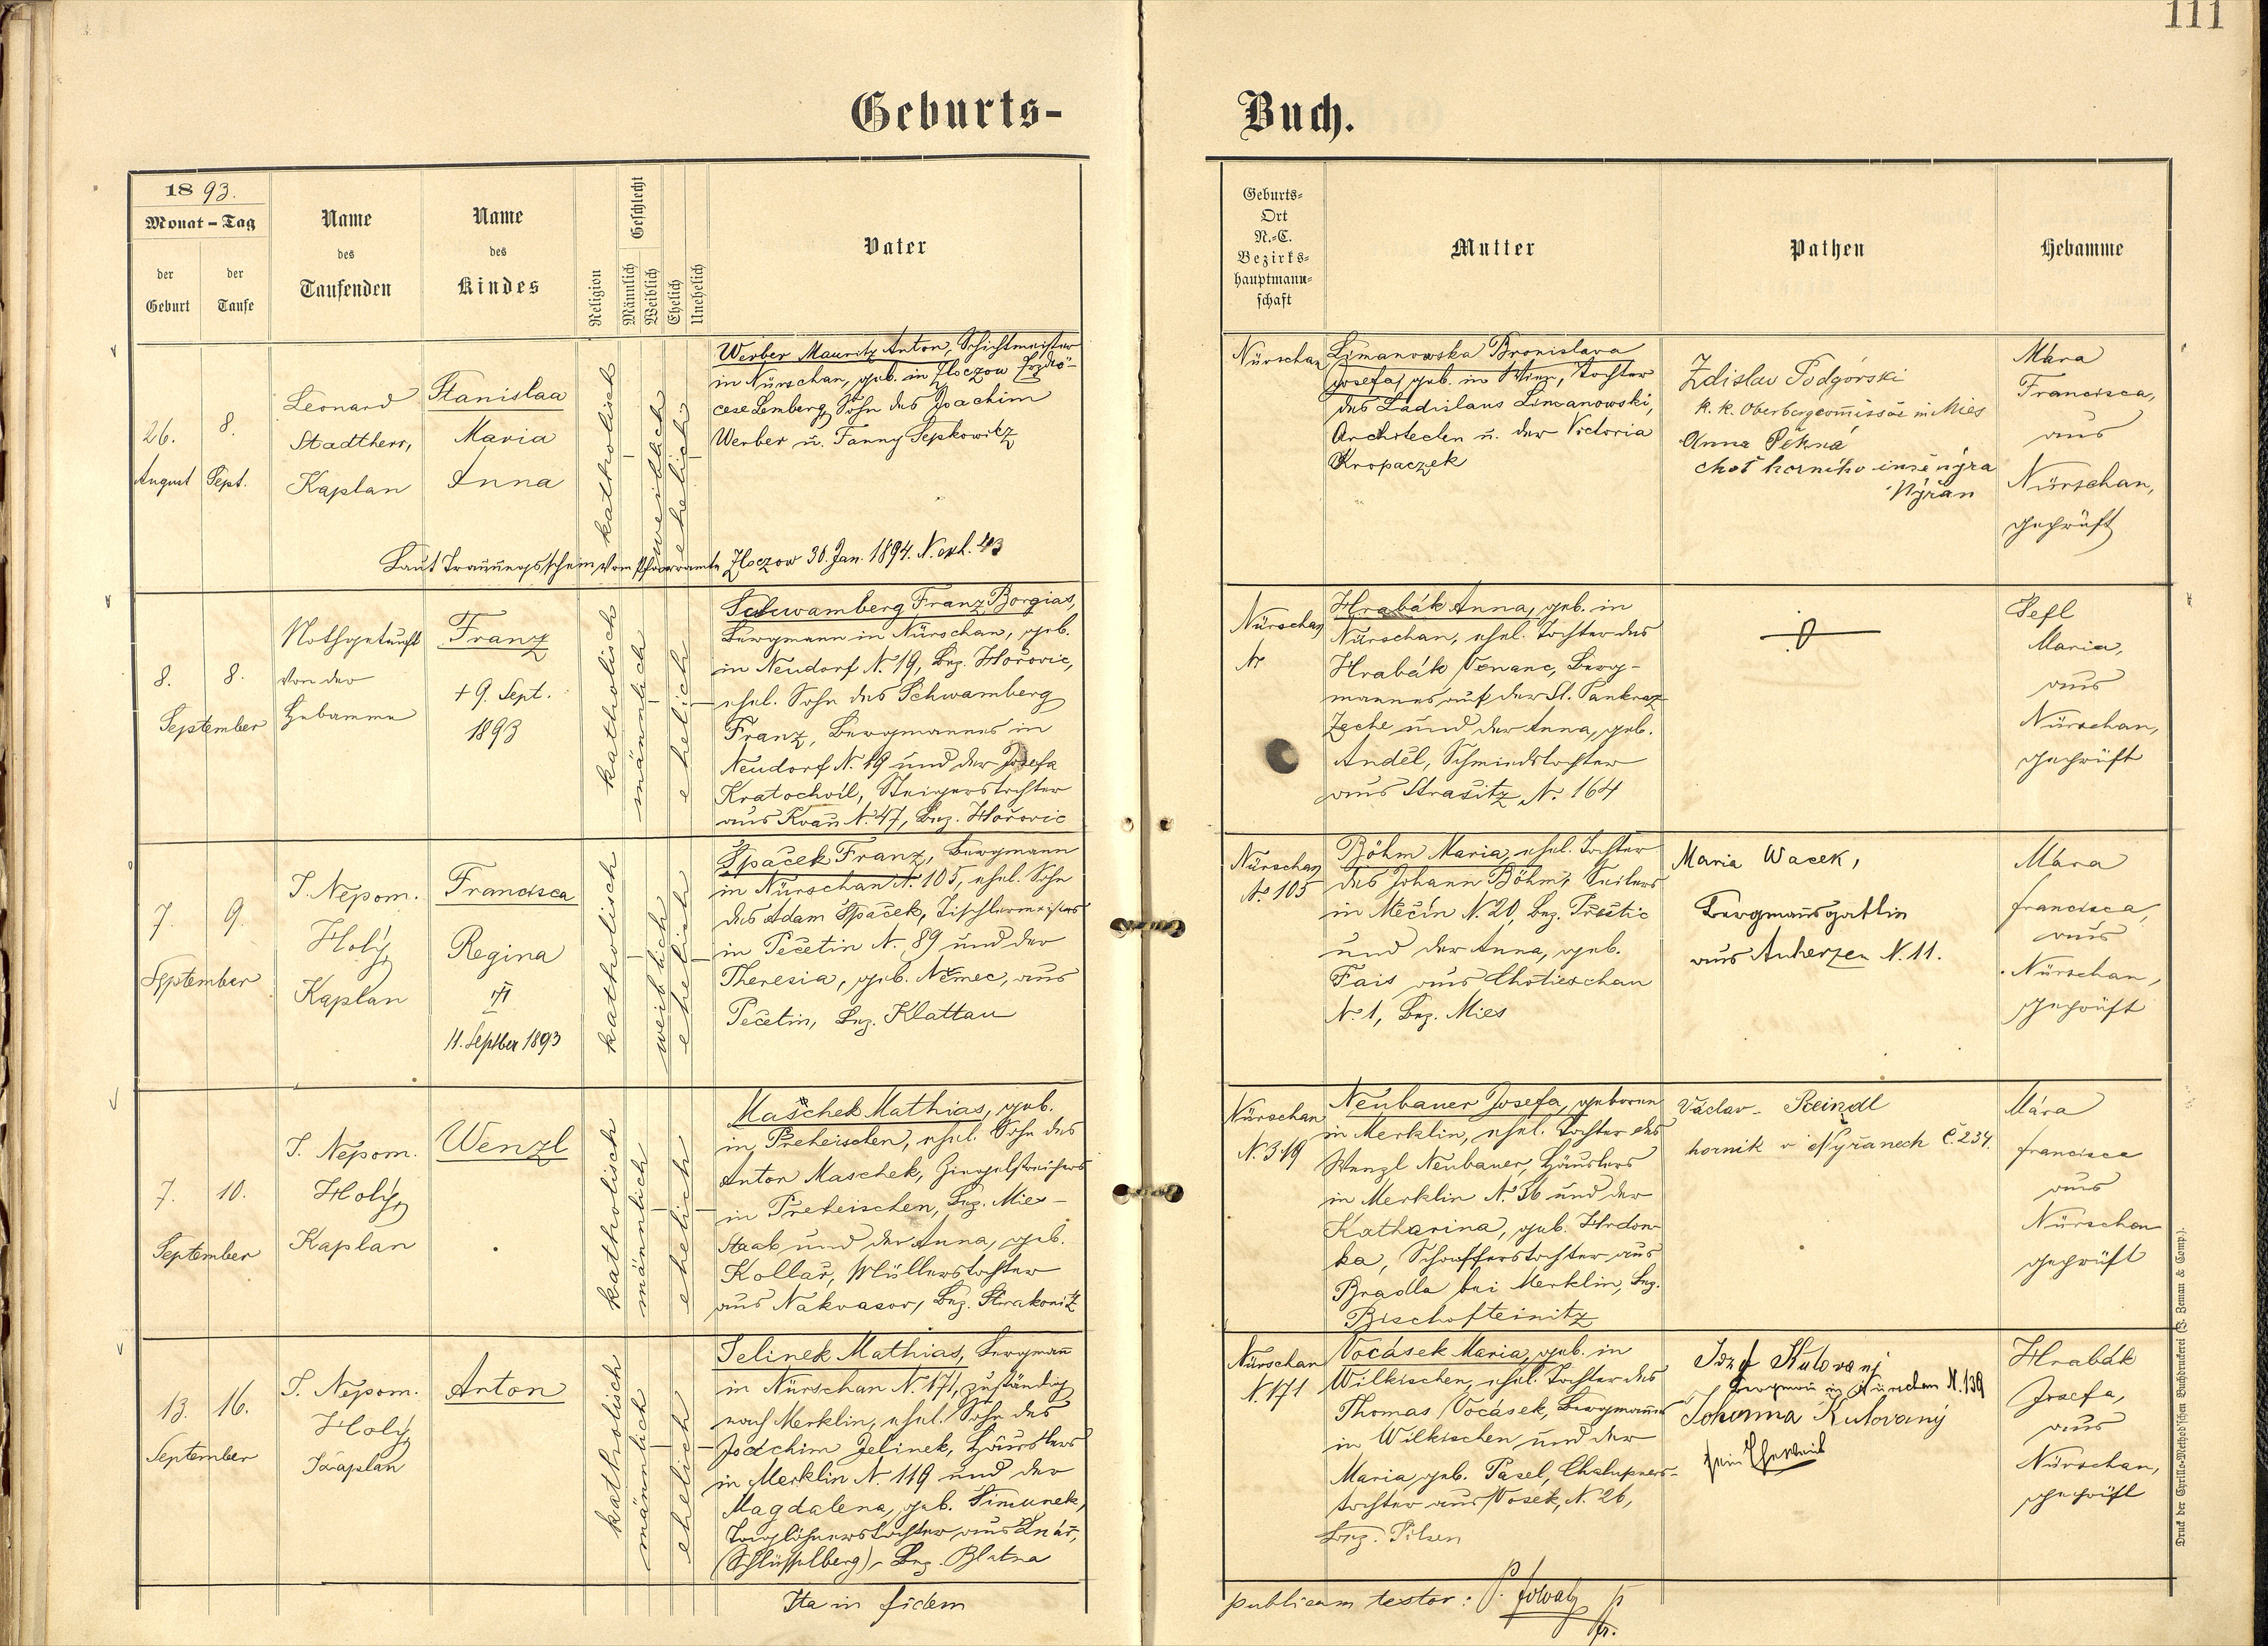 111
Geburts-
Buch.
1893.
Monat - Tag
der Geburt
der Taufe
Name des Taufenden
Name des Kindes
Religion
Geschlecht
Männlich
Weiblich
Ehelich
Unehelich
Vater
Geburts-
Ort
N.-C.
Bezirks-
hauptmann-
schaft
Mutter
Pathen
Hebamme
26.
August
8.
Sept.
Leonard
Stadtherr,
Kaplan
Stanislaa
Maria
Anna
katholisch
weiblich
ehelich
Werber Mauritz Anton, Schichtmeister
in Nürschan, geb. in Zloczow Erzdiö-
cese Lemberg, Sohn des Joachim
Werber u. Fanny Sepkowitz
Laut Trauungsschein vom Pfarramte Zloczow 30. Jan. 1894. N. exh. 43
Nürschan
Limanowska Bronislava
Josefa, geb. in Wien, Tochter
des Ladislaus Limanowski,
Architecten u. der Victoria
Kropaczek
Zdislav Podgórski
k. k. Oberbergcommissär in Mies
Anna Pěkná
choť horního inženýra
Nýřan
Mára
Francisca,
aus
Nürschan,
geprüft
8.
8.
September
Nothgetauft
von der
Hebamme
Franz
+ 9. Sept.
1893
katholisch
männlich
ehelich
Schwamberg Franz Borgias,
Bergmann in Nürschan, geb.
in Neudorf N. 19, Bez. Hořovic,
ehel. Sohn des Schwamberg
Franz, Bergmannes in
Neudorf N. 19 und der Josefa
Kratochvil, Steigerstochter
aus Kvaň N. 47, Bez. Hořovic
Nürschan
N.
Hrabák Anna, geb. in
Nürschan, ehel. Tochter des
Hrabák Venanc, Berg-
mannes auf der St. Pankraz
Zeche und der Anna, geb.
Anděl, Schmiedstochter
aus Strašitz N. 164
Pefl
Maria,
aus
Nürschan,
geprüft
7.
9.
September
J. Nepom.
Holý,
Kaplan
Francisca
Regina
11. Septber 1893
katholisch
weiblich
ehelich
Špaček Franz, Bergmann
in Nürschan N. 105, ehel. Sohn
des Adam Špaček, Tischlermeisters
in Pečetin N. 89 und der
Theresia, geb. Němec, aus
Pečetin, Bez. Klattau
Nürschan
N. 105
Böhm Maria, ehel. Tochter
des Johann Böhm, Seilers
in Mečín N. 20, Bez. Přestic
und der Anna, geb.
Fais aus Chotieschau
N. 1, Bez. Mies
Maria Wacek,
Bergmannsgattin
aus Auherzen N. 11.
Mára
Francisca,
aus
Nürschan,
geprüft
7.
10.
September
J. Nepom.
Holý,
Kaplan
Wenzl
katholisch
männlich
ehelich
Maschek Mathias, geb.
in Preheischen, ehel. Sohn des
Anton Maschek, Ziegelstreichers
in Preheischen, Bez. Mies-
Staab und der Anna, geb.
Kollař, Müllerstochter
aus Nakvasov, Bez. Strakonitz
Nürschan
N. 319
Neubauer Josefa, geboren
in Merklin, ehel. Tochter des
Wenzl Neubauer, Häuslers
in Merklin N. 56 und der
Katharina, geb. Hrdon-
ka, Schafferstochter aus
Bradla bei Merklin, Bez.
Bischofteinitz
Václav Reindl
horník v Nýřanech č. 234.
Mára
Francisca
aus
Nürschan
geprüft
13.
16.
September
J. Nepom.
Holý,
Kaplan
Anton
katholisch
männlich
ehelich
Jelinek Mathias, Bergmann
in Nürschan N. 171, zuständig
nach Merklin, ehel. Sohn des
Joachim Jelinek, Häuslers
in Merklin N. 119 und der
Magdalena, geb. Šimunek,
Taglöhnerstochter aus Lnář,
(Schlüsselberg), Bez. Blatna
Nürschan
N. 171
Vocásek Maria, geb. in
Wilkischen, ehel. Tochter des
Thomas Vocásek, Bergmannes
in Wilkischen und der
Maria, geb. Pasel, Chalupners-
tochter aus Vosek, N. 26,
Bez. Pilsen
Josef Kutovaný
Bergmann in Nürschan N. 139
Johanna Kutovaný
sein Eheweib
Hrabák
Josefa,
aus
Nürschan,
geprüft
Ita in fidem
publicam testor:
Druck der Cyrillo-Method'schen Buchdruckerei (J. Zeman & Comp.).